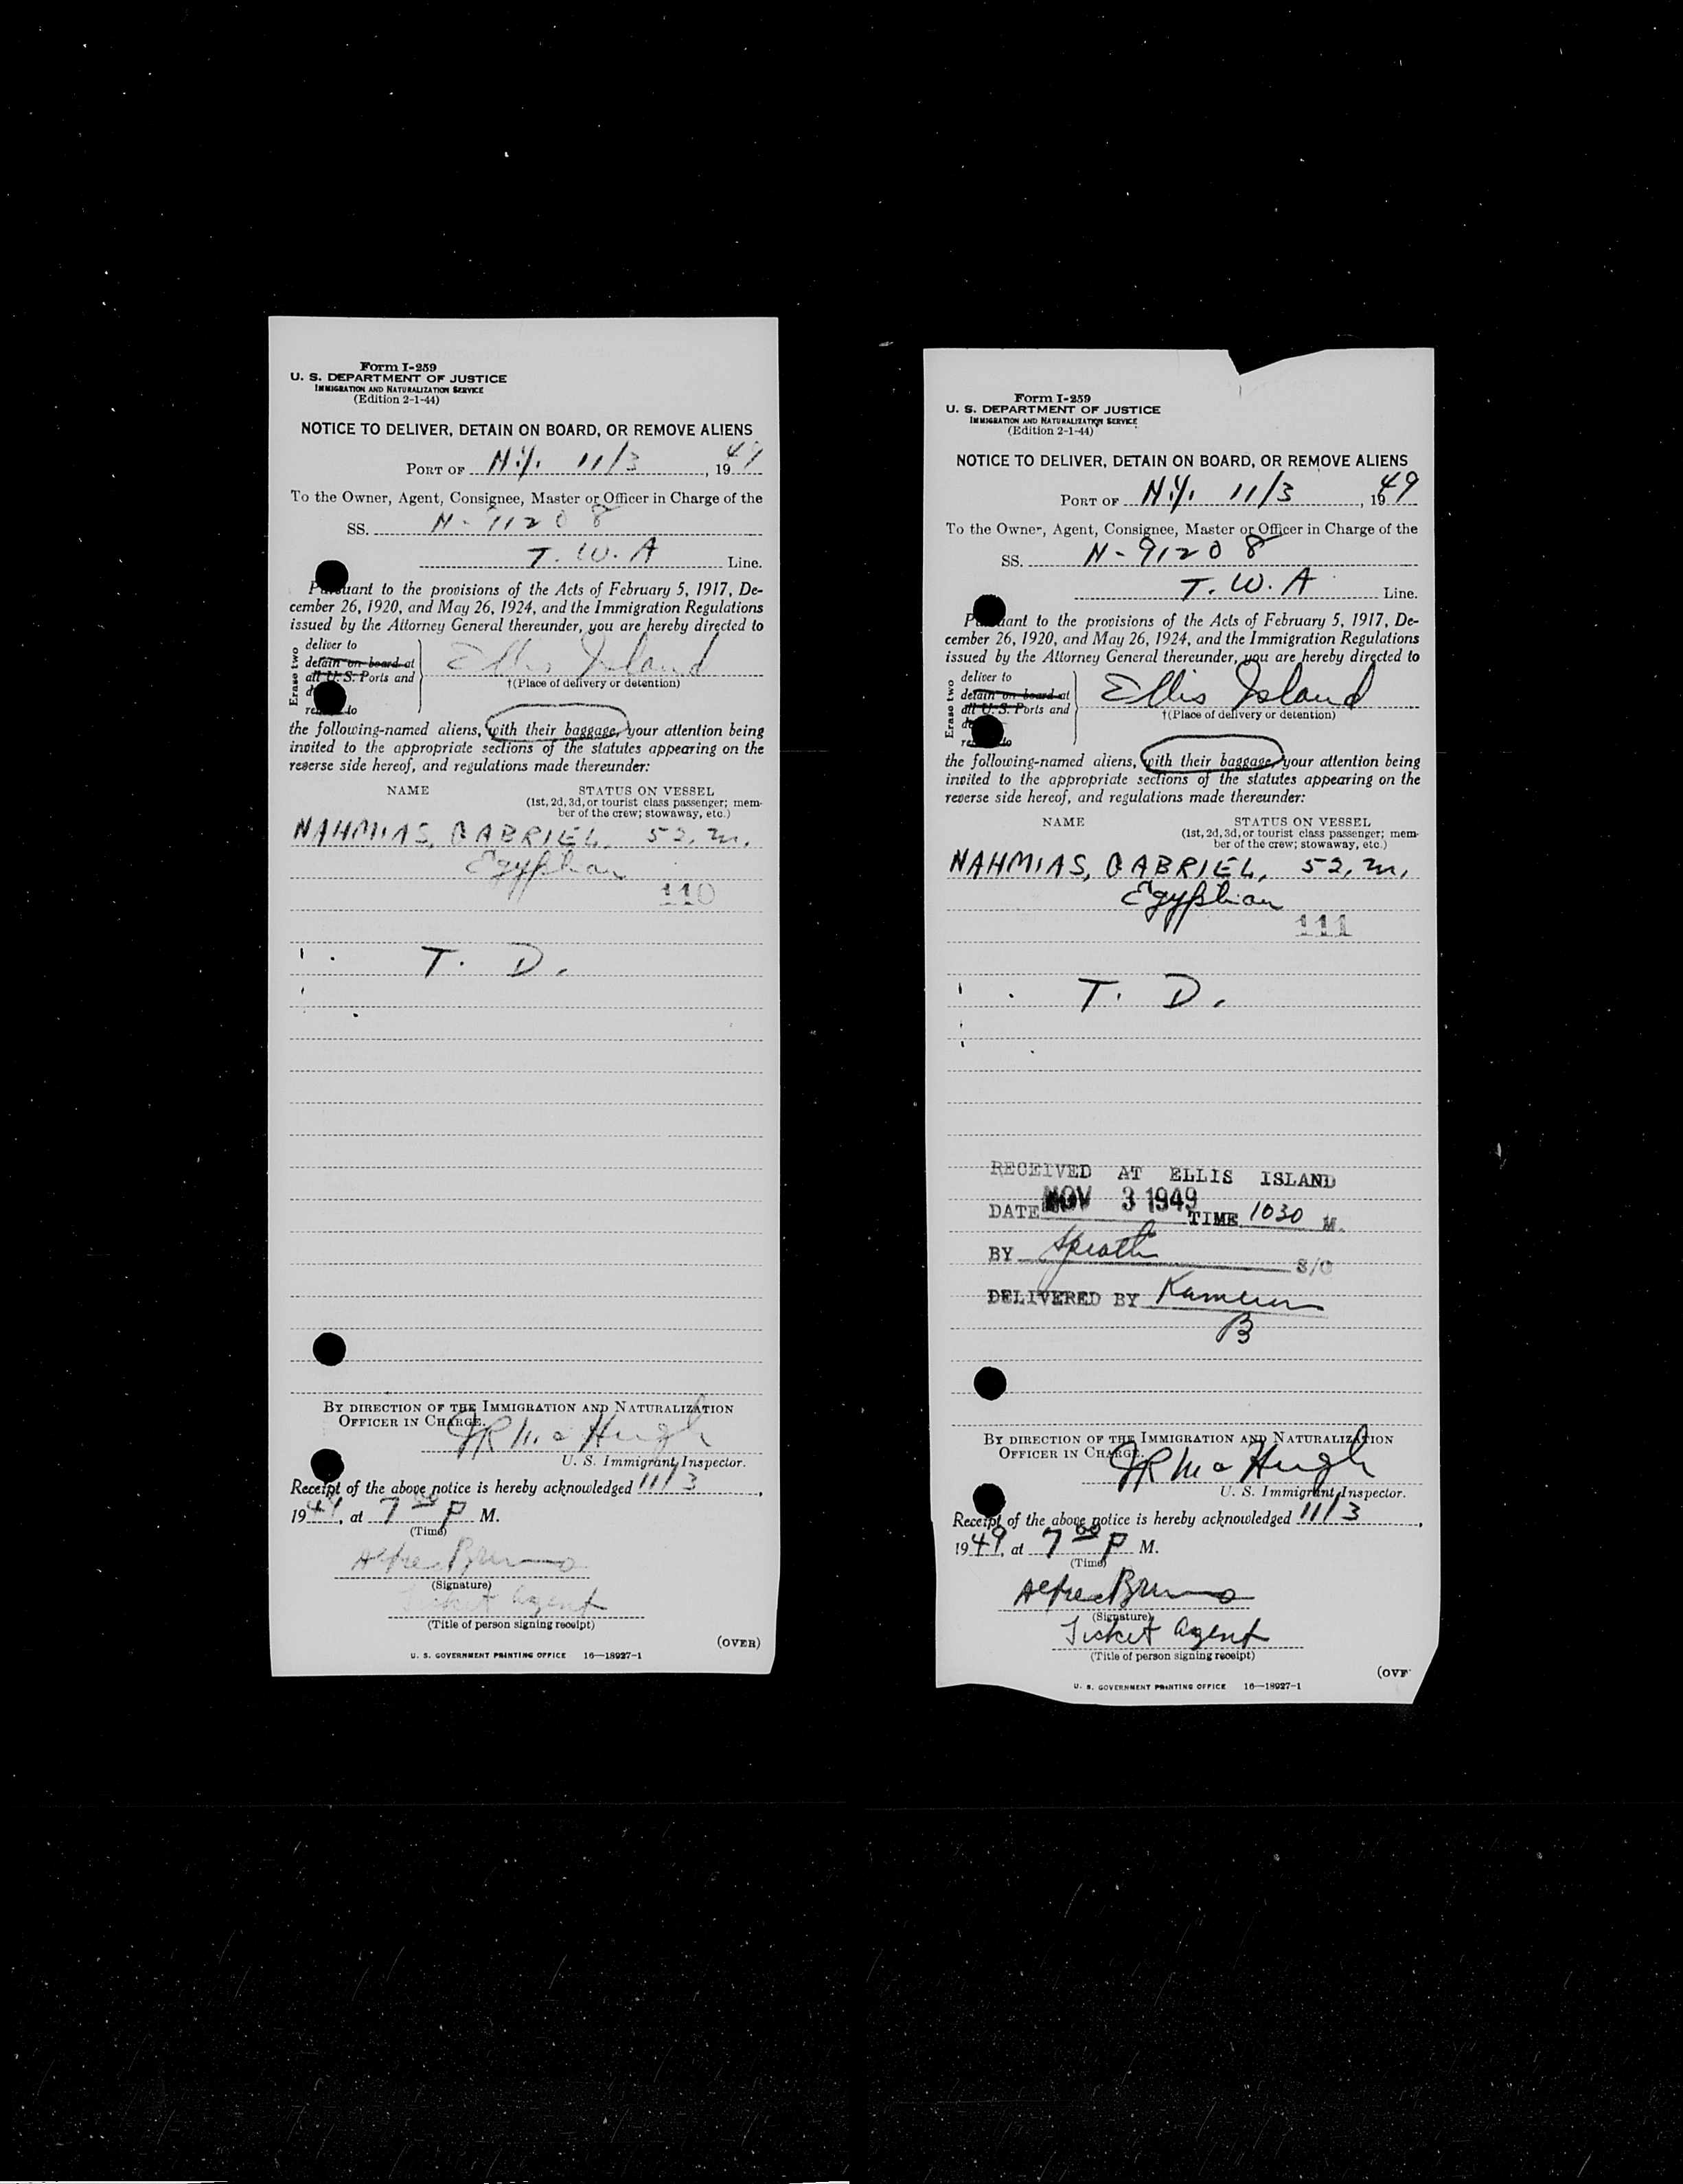 Form I-259
U. S. DEPARTMENT OF JUSTICE
IMMIGRATION AND NATURALIZATION SERVICE
(Edition 2-1-44)
NOTICE TO DELIVER, DETAIN ON BOARD, OR REMOVE ALIENS
PORT OF N.Y. 11/3, 1949
To the Owner, Agent, Consignee, Master or Officer in Charge of the
SS. N-91208
T.W.A Line.
Pursuant to the provisions of the Acts of February 5, 1917, De-
cember 26, 1920, and May 26, 1924, and the Immigration Regulations
issued by the Attorney General thereunder, you are hereby directed to
Erase two
deliver to
detain on board at
all U. S. Ports and
Ellis Island
†(Place of delivery or detention)
to
the following-named aliens, with their baggage, your attention being
invited to the appropriate sections of the statutes appearing on the
reverse side hereof, and regulations made thereunder:
NAME STATUS ON VESSEL
(1st, 2d, 3d, or tourist class passenger; mem-
ber of the crew; stowaway, etc.)
NAHMIAS, GABRIEL, 52, m,
Egyptian
110
T. D.
BY DIRECTION OF THE IMMIGRATION AND NATURALIZATION
OFFICER IN CHARGE.
JR McHugh
U. S. Immigrant Inspector.
Receipt of the above notice is hereby acknowledged 11/3,
1949, at 7 00 P M.
(Time)
Alfred Bruno
(Signature)
Ticket Agent
(Title of person signing receipt)
(OVER)
U. S. GOVERNMENT PRINTING OFFICE 16—18927-1
Form I-259
U. S. DEPARTMENT OF JUSTICE
IMMIGRATION AND NATURALIZATION SERVICE
(Edition 2-1-44)
NOTICE TO DELIVER, DETAIN ON BOARD, OR REMOVE ALIENS
PORT OF N.Y. 11/3, 1949
To the Owner, Agent, Consignee, Master or Officer in Charge of the
SS. N-91208
T.W.A Line.
Pursuant to the provisions of the Acts of February 5, 1917, De-
cember 26, 1920, and May 26, 1924, and the Immigration Regulations
issued by the Attorney General thereunder, you are hereby directed to
Erase two
deliver to
detain on board at
all U. S. Ports and
Ellis Island
†(Place of delivery or detention)
to
the following-named aliens, with their baggage, your attention being
invited to the appropriate sections of the statutes appearing on the
reverse side hereof, and regulations made thereunder:
NAME STATUS ON VESSEL
(1st, 2d, 3d, or tourist class passenger; mem-
ber of the crew; stowaway, etc.)
NAHMIAS, GABRIEL, 52, m,
Egyptian
111
T. D.
RECEIVED AT ELLIS ISLAND
DATE NOV 3 1949 TIME 1030 M.
BY S/O
DELIVERED BY
B
BY DIRECTION OF THE IMMIGRATION AND NATURALIZATION
OFFICER IN CHARGE.
JR McHugh
U. S. Immigrant Inspector.
Receipt of the above notice is hereby acknowledged 11/3,
1949, at 7 00 P M.
(Time)
Alfred Bruno
(Signature)
Ticket Agent
(Title of person signing receipt)
(OVE
U. S. GOVERNMENT PRINTING OFFICE 16—18927-1